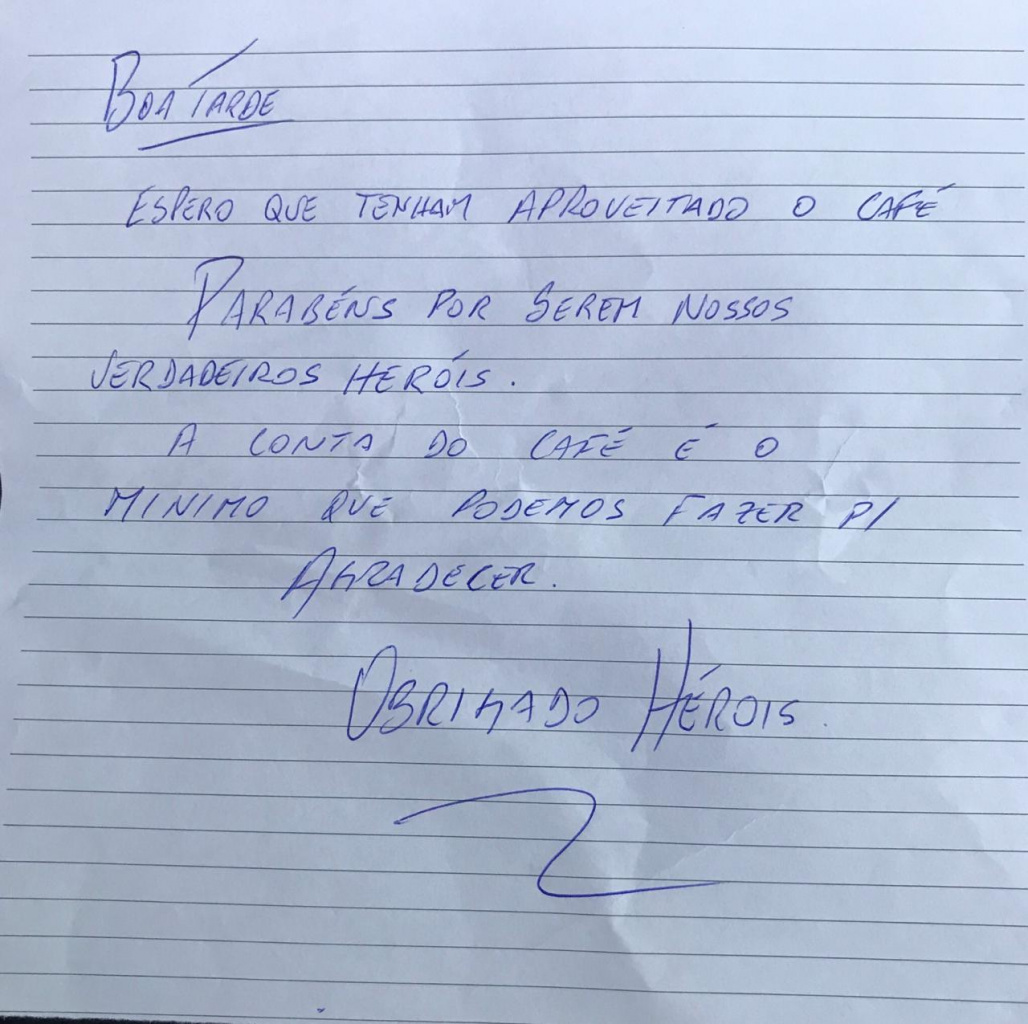 BOA TARDE
ESPERO QUE TENHAM APROVEITADO O CAFÉ
PARABÉNS POR SEREM NOSSOS
VERDADEIROS HERÓIS.
A CONTA DO CAFÉ É O
MINIMO QUE PODEMOS FAZER P/
AGRADECER.
OBRIGADO HÉROIS.